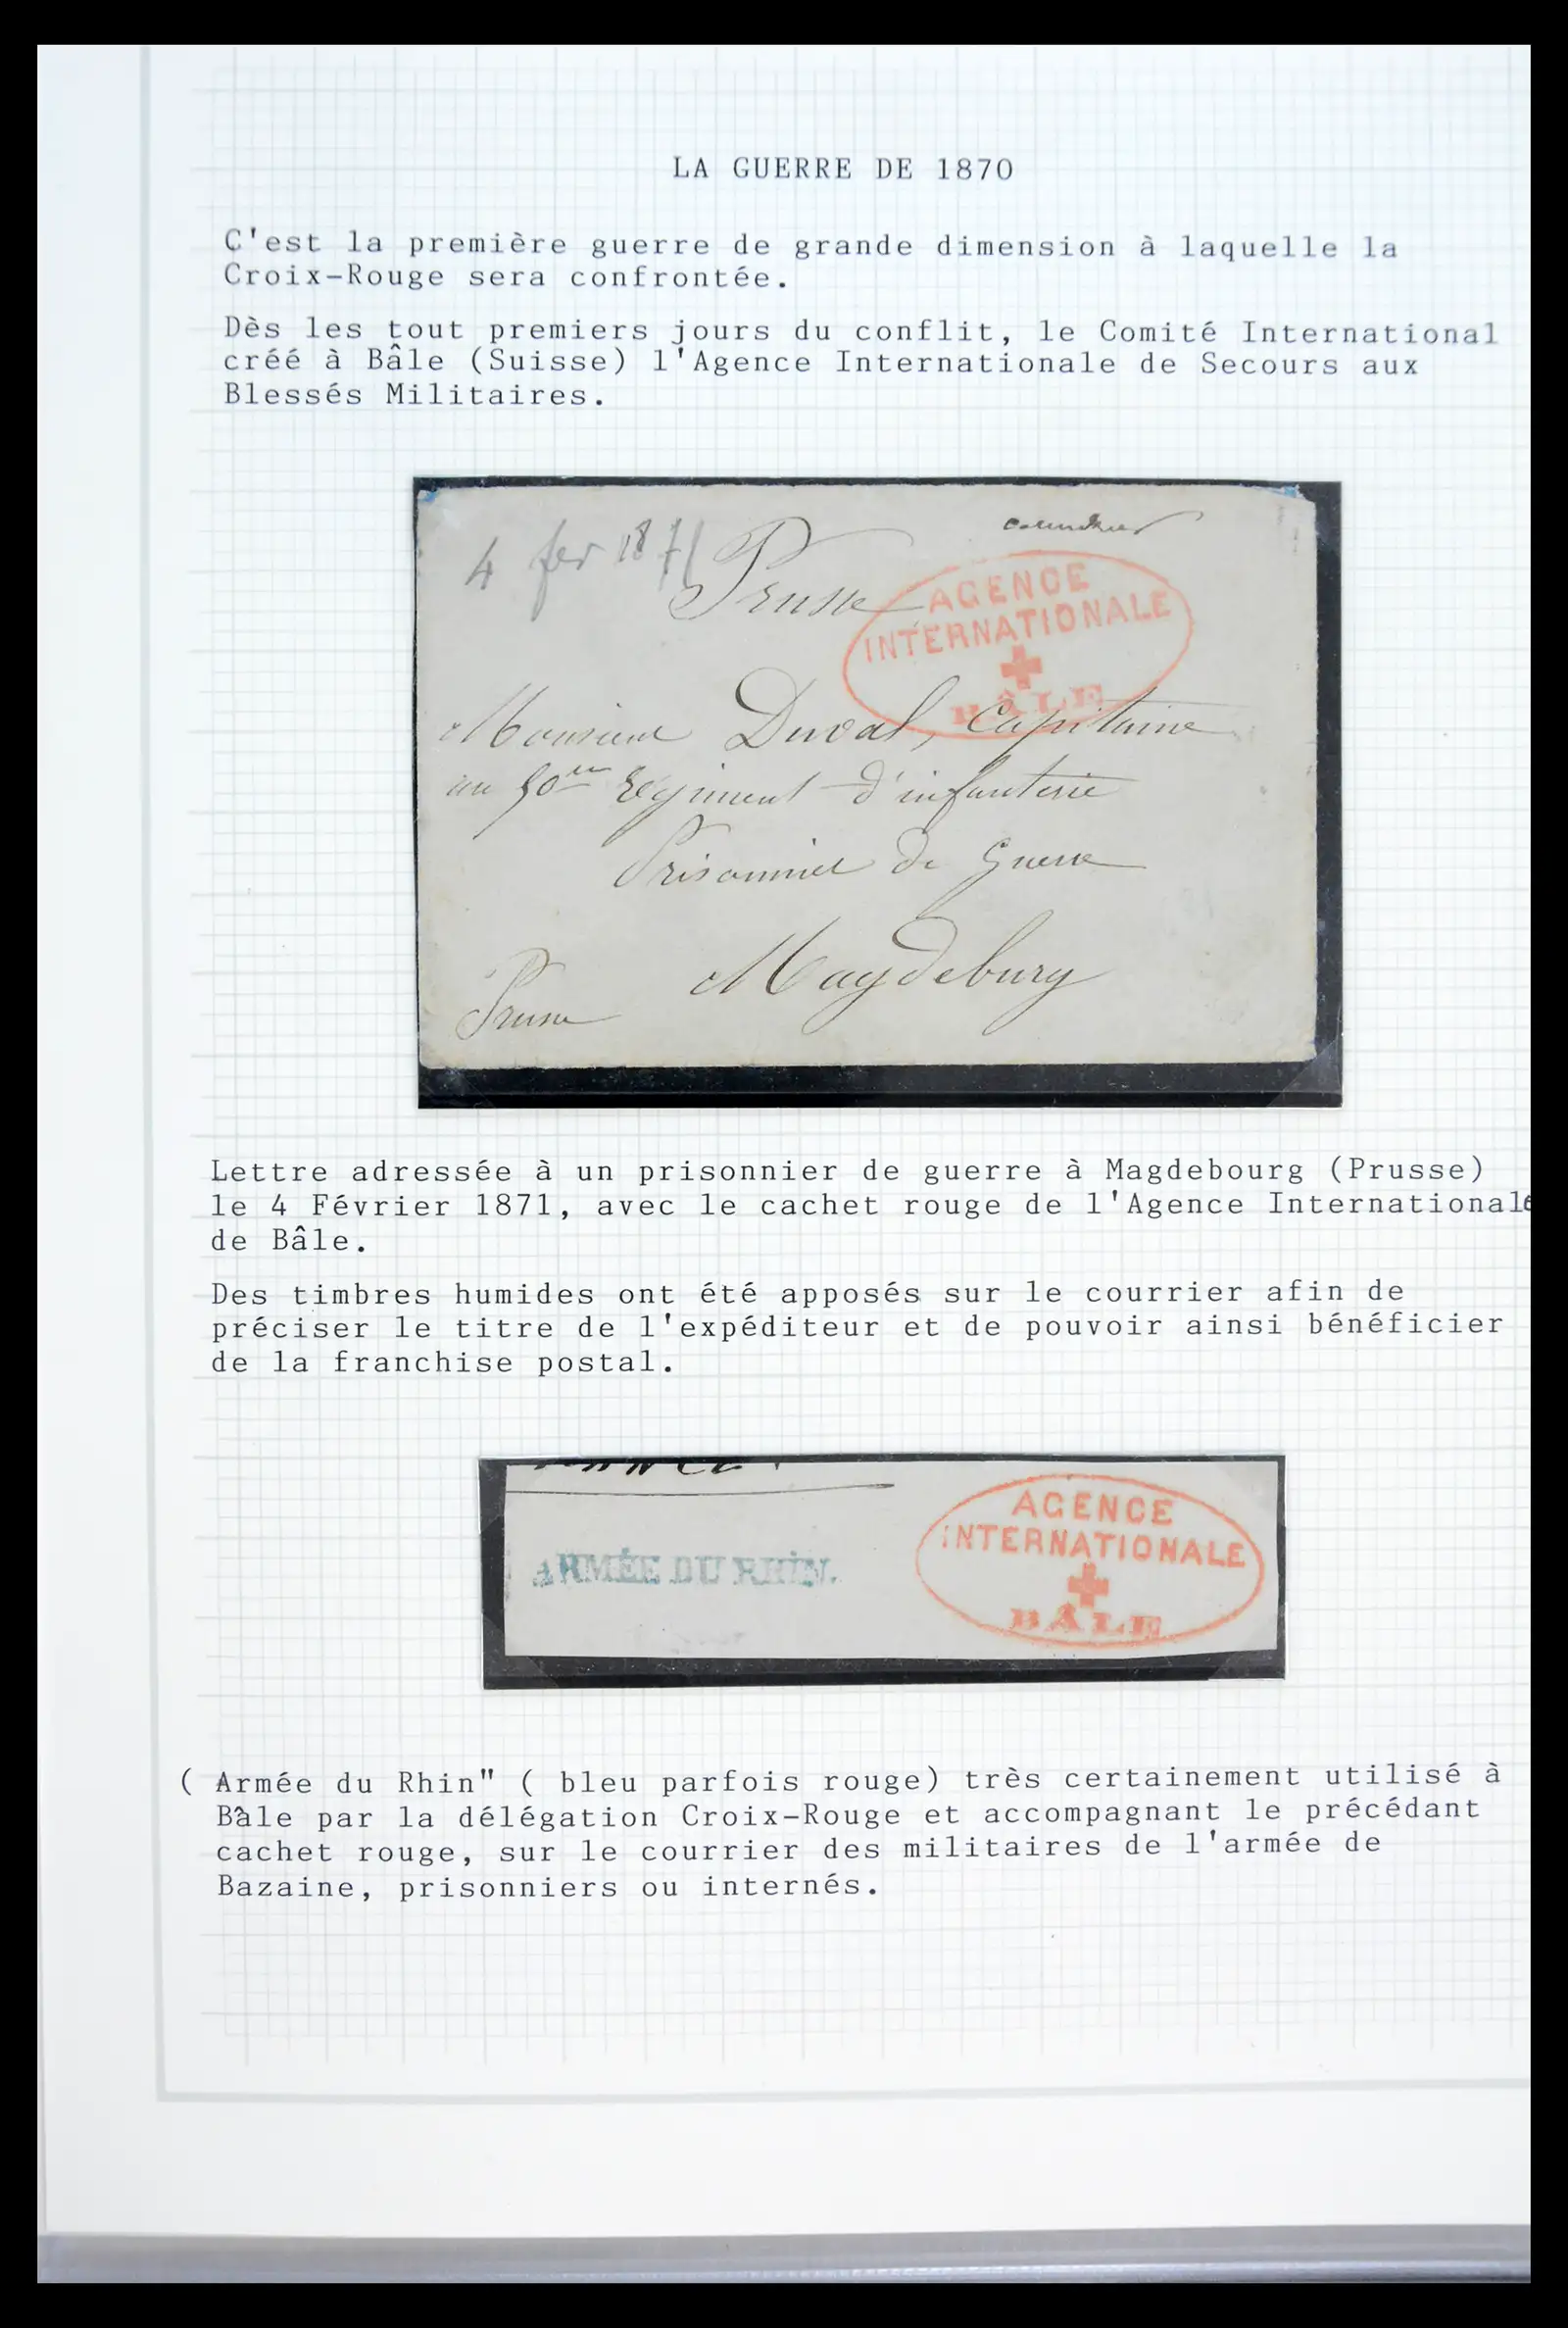 LA GUERRE DE 1870
C'est la première guerre de grande dimension à laquelle la
Croix-Rouge sera confrontée.
Dès les tout premiers jours du conflit, le Comité International
créé à Bâle (Suisse) l'Agence Internationale de Secours aux
Blessés Militaires.
4 fev 1871
Prusse
AGENCE
INTERNATIONALE
BÂLE
Monsieur Duval, Capitaine
au 50me Régiment d'infanterie
Prisonnier de Guerre
Magdeburg
Prusse
Lettre adressée à un prisonnier de guerre à Magdebourg (Prusse)
le 4 Février 1871, avec le cachet rouge de l'Agence Internationale
de Bâle.
Des timbres humides ont été apposés sur le courrier afin de
préciser le titre de l'expéditeur et de pouvoir ainsi bénéficier
de la franchise postal.
ARMÉE DU RHIN.
AGENCE
INTERNATIONALE
BÂLE
( Armée du Rhin" ( bleu parfois rouge) très certainement utilisé à
Bâle par la délégation Croix-Rouge et accompagnant le précédant
cachet rouge, sur le courrier des militaires de l'armée de
Bazaine, prisonniers ou internés.